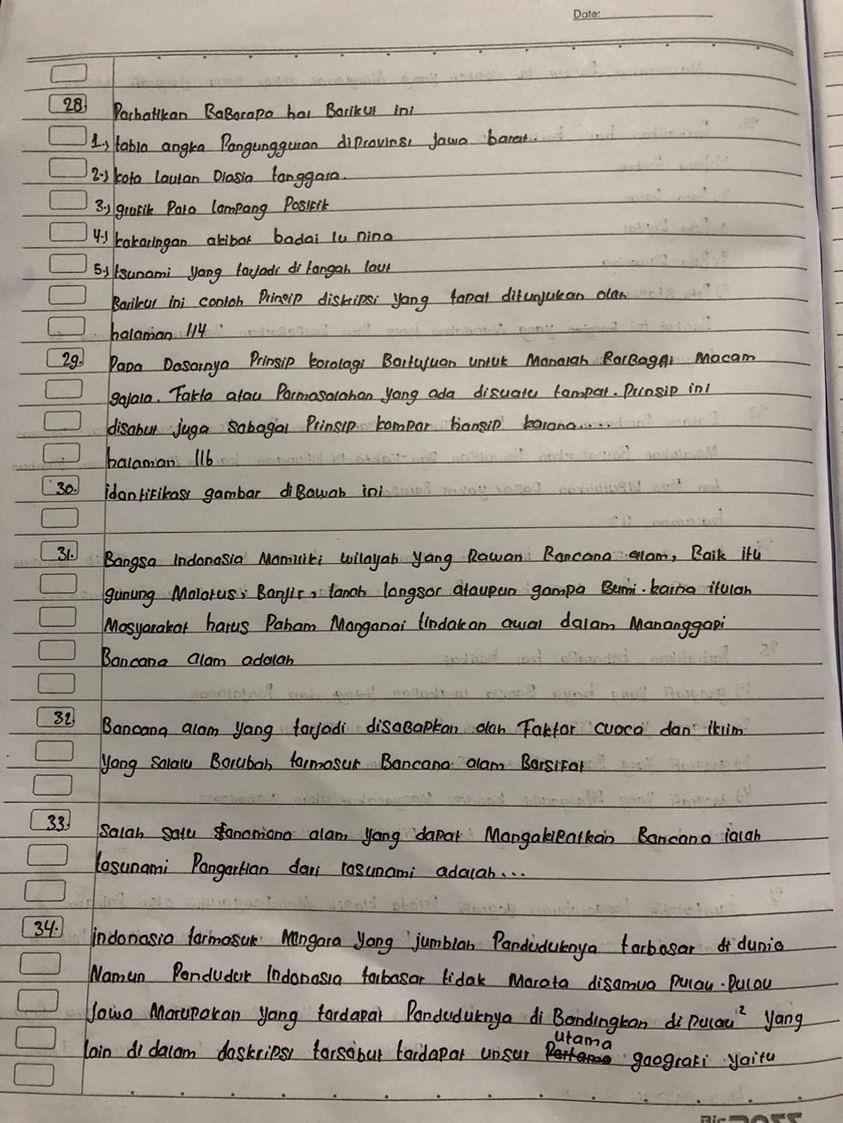 Date:
28. Parhatikan BaBarapa hal Barikut ini
1.) tabla angka Pangungguran diProvinsi Jawa barat.
2.) kota lautan Diasia tanggara.
3.) grafik Pala lampang Positik
4.) kakaringan akibat badai la nina
5.) tsunami yang tarjadi di tangah laut
Barikut ini contoh Prinsip diskripsi yang tapat ditunjukan olah
halaman 114
29. Pada Dasarnya Prinsip korologi Bartujuan untuk Manalah BarBagai Macam
gajala. Fakta atau Parmasalahan yang ada disuatu tampat. Prinsip ini
disabut juga sabagai Prinsip kompar hansip karana....
halaman 116
30. idantifikasi gambar diBawah ini
31. Bangsa Indonasia Mamiliki wilayah yang Rawan Bancana alam, Baik itu
gunung Malatus, Banjir, tanah longsor ataupun gampa Bumi. karna itulah
Masyarakat harus Paham Manganai tindakan awal dalam Mananggapi
Bancana alam adalah
32. Bancana alam yang tarjadi disaBaPkan olah Faktor cuaca dan iklim
yang Salalu Barubah tarmasuk Bancana alam Barsifat
33. Salah satu fanomana alam yang daPat MangakiBatkan Bancana ialah
tasunami Pangartian dari tasunami adalah...
34. indonasia tarmasuk Nangara yang jumblah Panduduknya tarbasar di dunia
Namun Panduduk Indonasia tarbasar tidak Marata disamua Pulau-Pulau
Jawa MaruPakan yang tardapat Panduduknya di Bandingkan di Pulau² yang
lain di dalam daskripsi tarsabut tardapat unsur utama gaografi yaitu